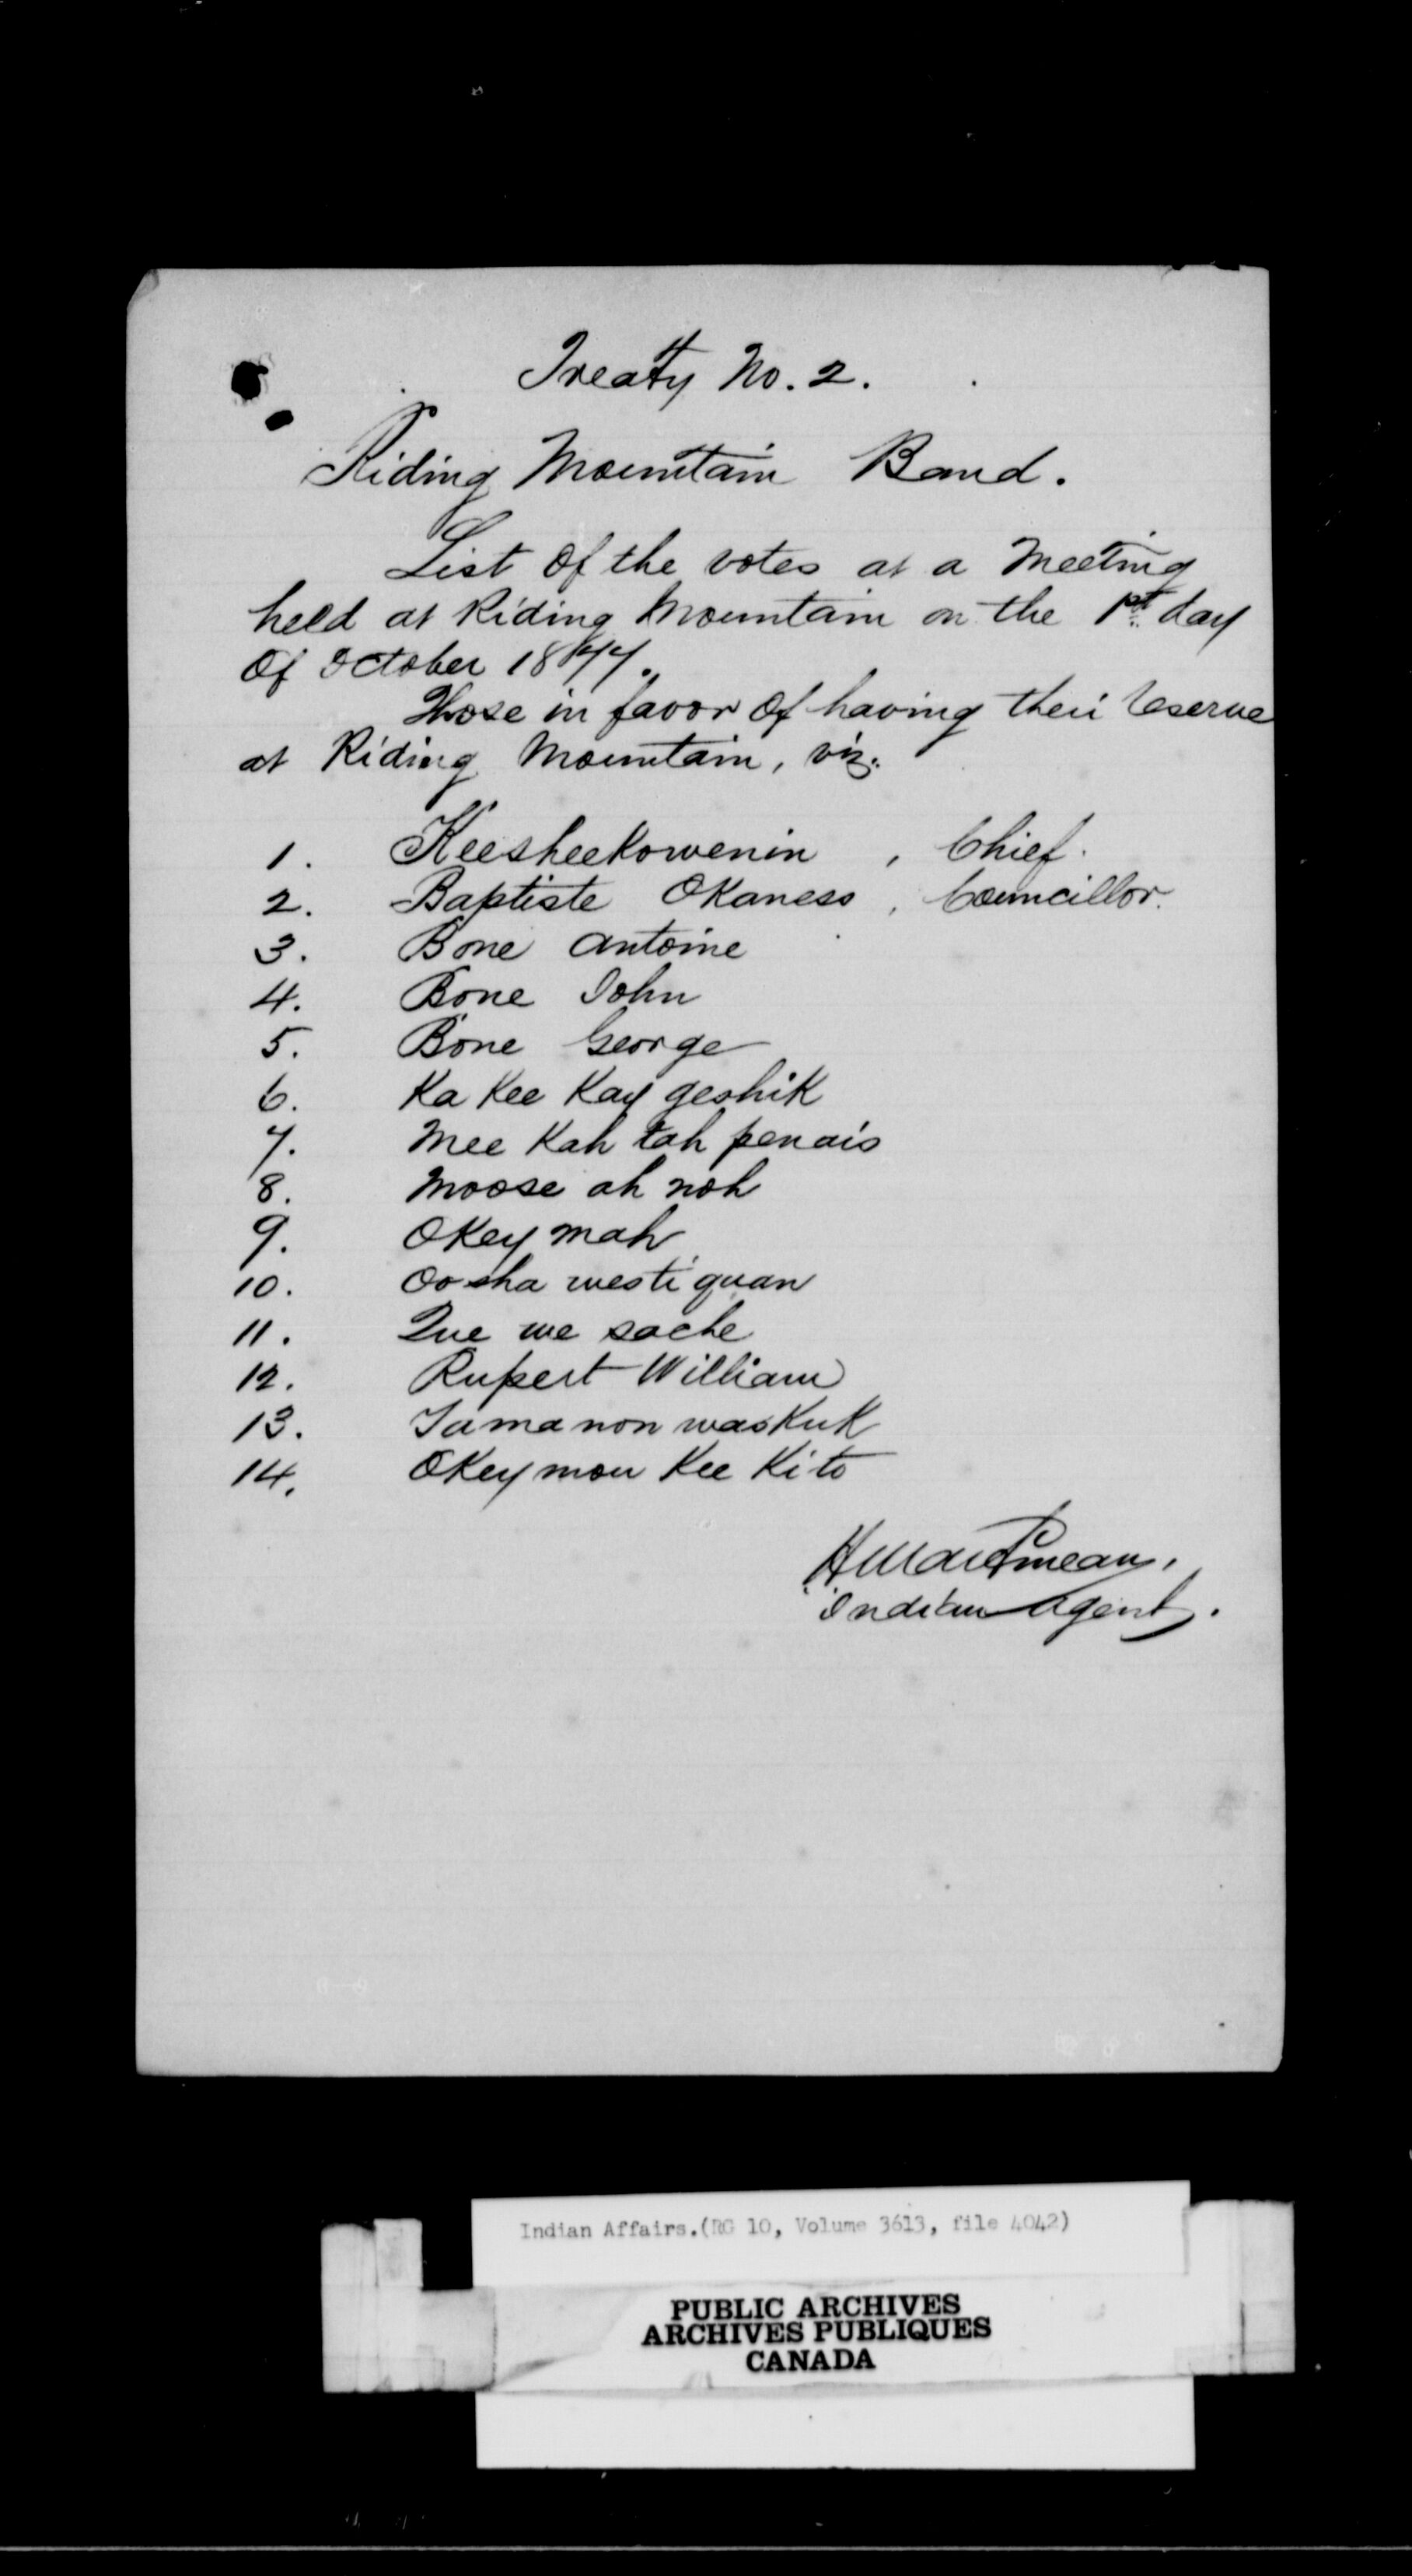 Treaty No. 2.
Riding Mountain Band.
List of the votes at a Meeting
held at Riding Mountain on the 1st day
Of October 1877.
Those in favor of having their reserve
at Riding Mountain, viz.
1. Keesheekowenin , Chief.
2. Baptiste Okaness , Councillor.
3. Bone Antoine
4. Bone John
5. Bone George
6. Ka Kee Kay geshik
7. Mee Kah tah penais
8. Moose ah noh
9. Okey mah
10. Oo sha westi quan
11. Que we sache
12. Rupert William
13. Tama non waskuk
14. Okey mou Kee Kito
H. Martineau.
Indian Agent.
Indian Affairs.(RG 10, Volume 3613, file 4042)
PUBLIC ARCHIVES
ARCHIVES PUBLIQUES
CANADA